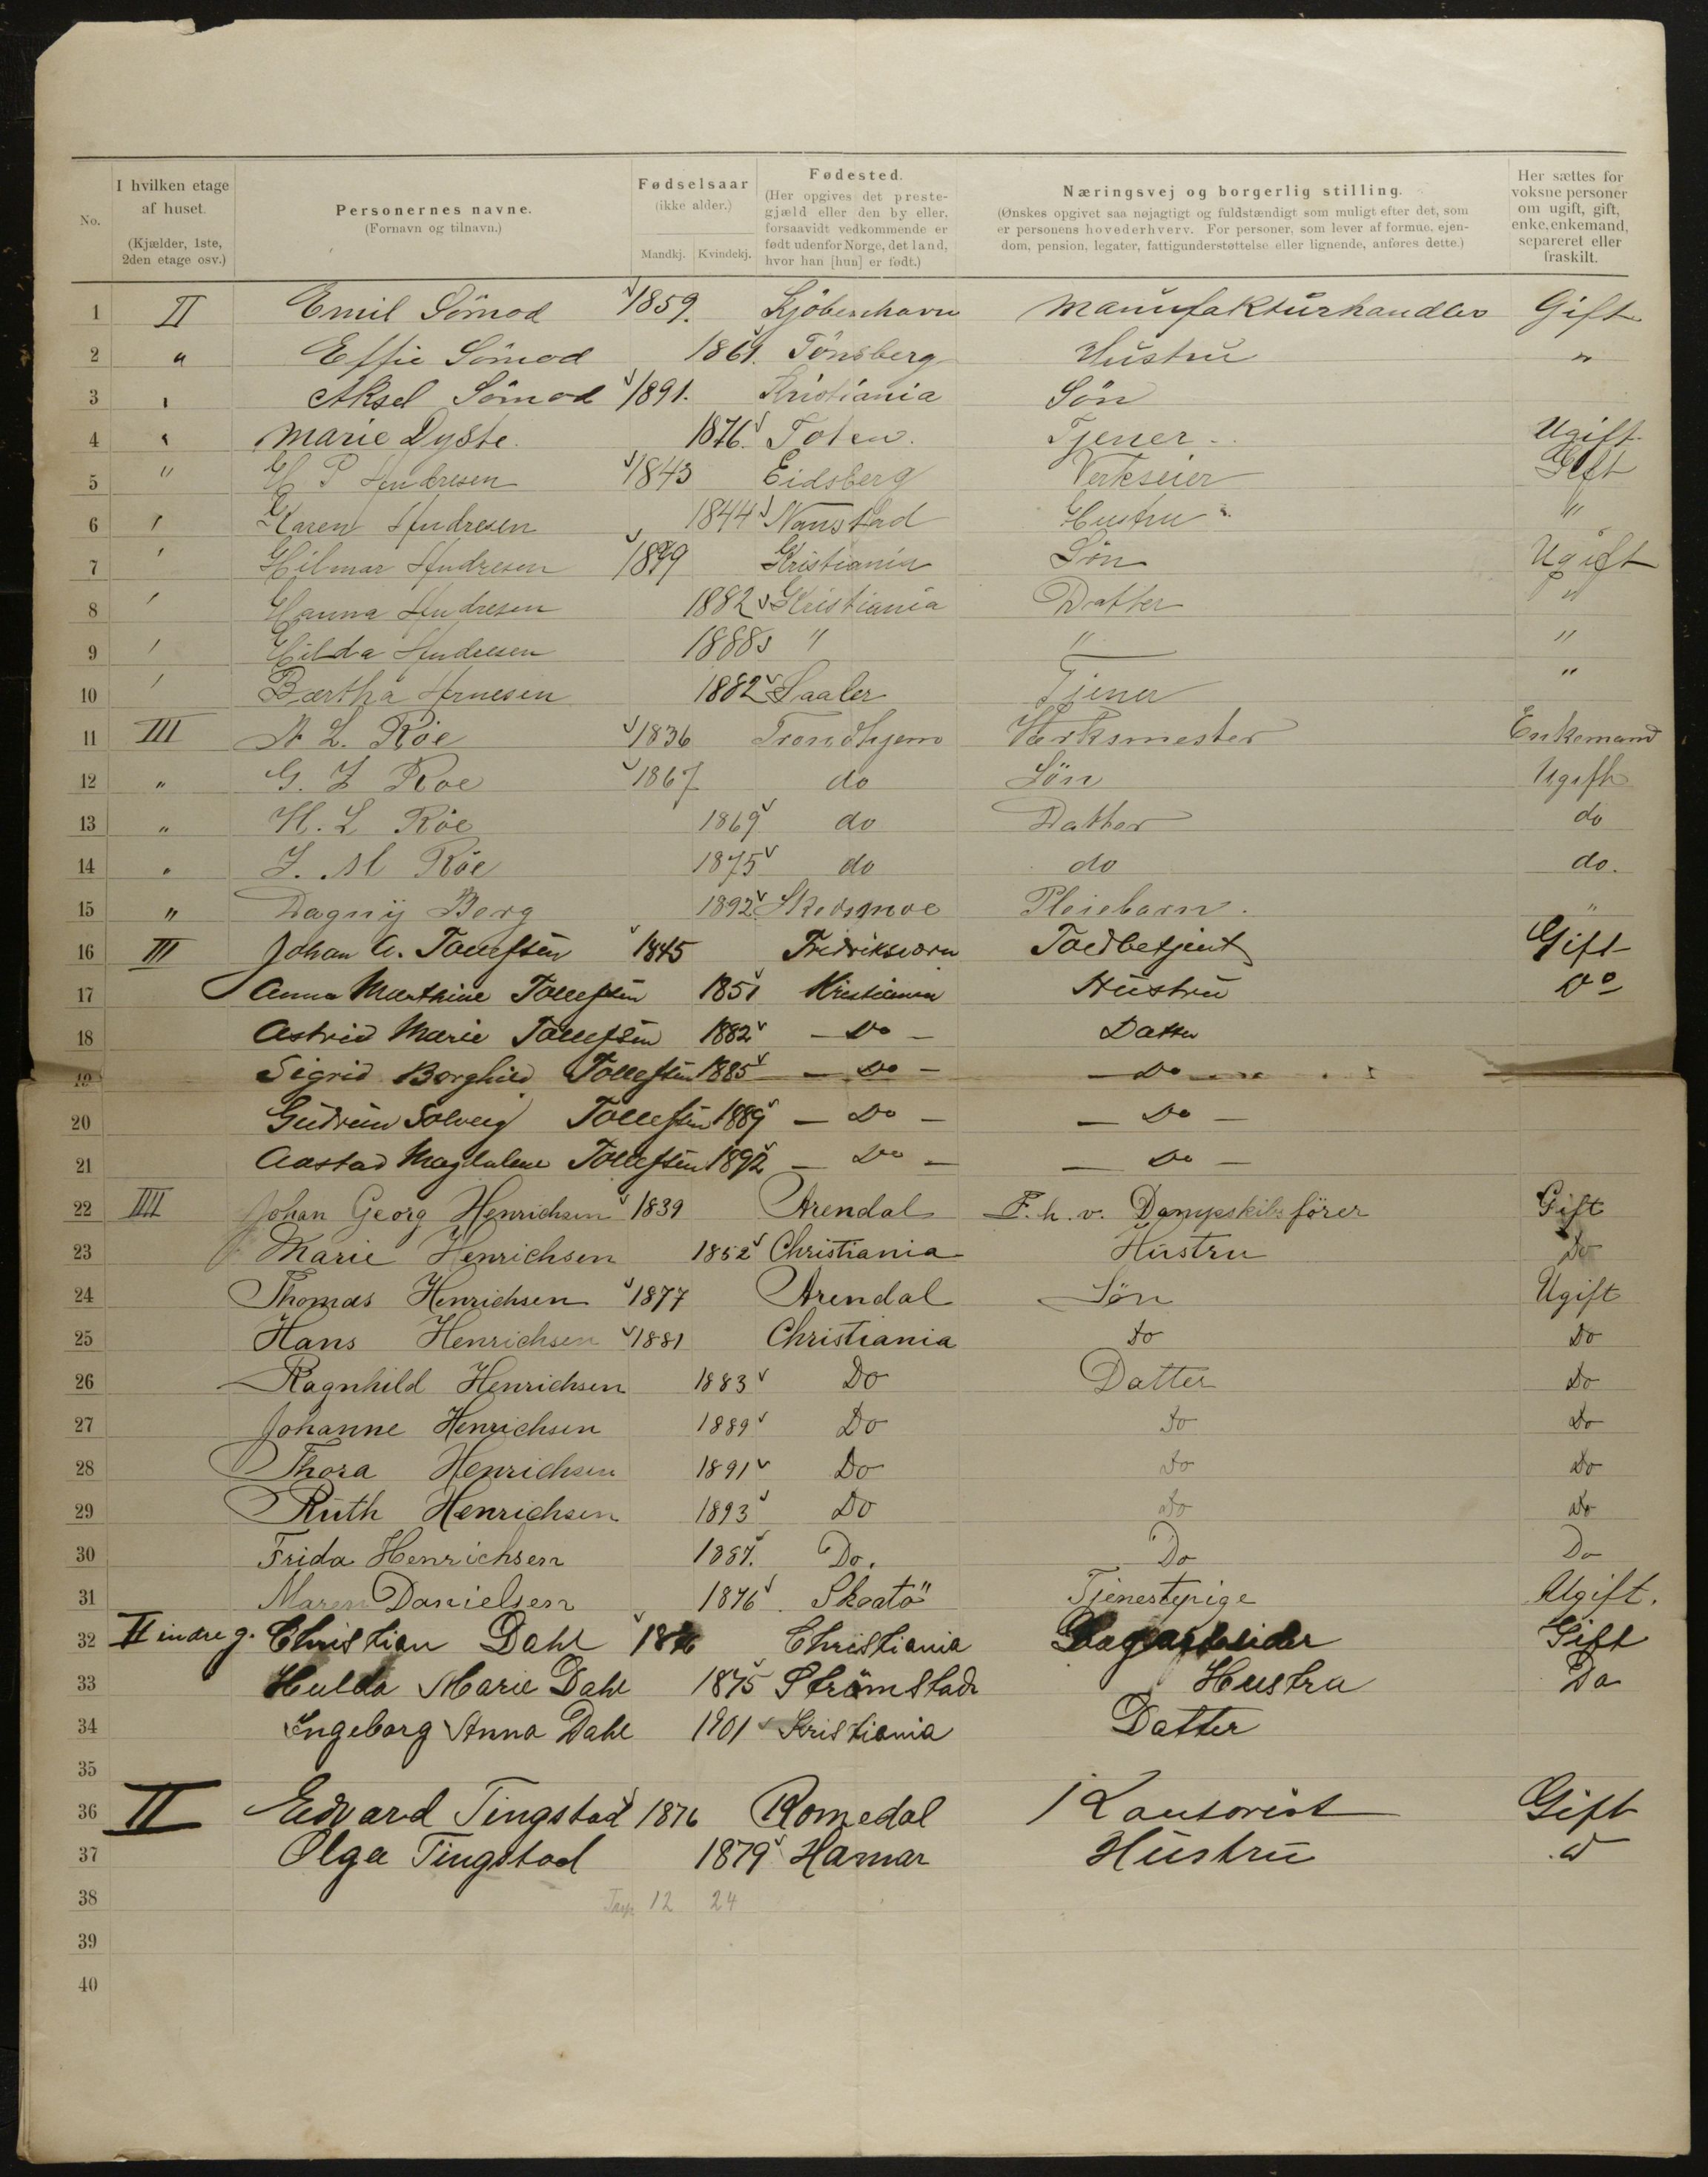 No.
I hvilken etage af huset. (Kjælder, 1ste, 2den etage osv.)
Personernes navne. (Fornavn og tilnavn.)
Fødselsaar (ikke alder.) Mandkj. Kvindekj.
Fødested. (Her opgives det prestegjæld eller den by eller, forsaavidt vedkommende er født udenfor Norge, det land, hvor han [hun] er født.)
Næringsvej og borgerlig stilling. (Ønskes opgivet saa nøjagtigt og fuldstændigt som muligt efter det, som er personens hovederhverv. For personer, som lever af formue, ejendom, pension, legater, fattigunderstøttelse eller lignende, anføres dette.)
Her sættes for voksne personer om ugift, gift, enke, enkemand, separeret eller fraskilt.
1 II Emil Sömod 1859. Kjöbenhavn Manufakturhandler Gift
2 " Effie Sömod 1861. Tönsberg Hustru "
3 " Aksel Sömod 1891. Kristiania Sön
4 " Marie Dyste. 1876. Toten. Tjener. Ugift
5 " H P Andresen 1843 Eidsberg Verkseier Gift
6 " Karen Andresen 1844 Nanstad Hustru "
7 " Hilmar Andresen 1879 Kristiania Sön Ugift
8 " Hanna Andresen 1882 Kristiania Datter "
9 " Hilda Andresen 1888 " " "
10 " Bærtha Arnesen 1882 Saaler Tjener "
11 III A L. Röe 1836 Trondhjem Værksmester Enkemand
12 " G. Z Roe 1867 do Sön Ugift
13 " H. L Röe 1869 do Datter do
14 " Z. M Röe 1875 do do do.
15 " Dagny Berg 1892 Skedsmoe Pleiebarn. "
16 III Johan A. Tollefsen 1845 Fredriksværn Toldbetjent Gift
17 Anna Marthine Tollefsen 1851 Kristiania Hustru Do
18 Astrid Marie Tollefsen 1882 – Do – Datter
19 Sigrid Borghild Tollefsen 1885 – Do – – Do –
20 Gudrun Solveig Tollefsen 1889 – Do – – Do –
21 Aastad Magdalene Tollefsen 1892 – Do – – Do –
22 IIII Johan Georg Henrichsen 1839 Arendal F. h. v. Dampskibsförer Gift
23 Marie Henrichsen 1852 Christiania Hustru Do
24 Thomas Henrichsen 1877 Arendal Sön Ugift
25 Hans Henrichsen 1881 Christiania Do Do
26 Ragnhild Henrichsen 1883 Do Datter Do
27 Johanne Henrichsen 1889 Do Do Do
28 Thora Henrichsen 1891 Do Do Do
29 Ruth Henrichsen 1893 Do Do Do
30 Frida Henrichsen 1887. Do. Do Do
31 Maren Danielsen 1876 Skaatö Tjenestepige Ugift.
32 II indre g. Christian Dahl 1876 Christiania Dagarbeider Gift
33 Hulda Marie Dahl 1875 Strömstad Hustru Do
34 Ingeborg Anna Dahl 1901 Kristiania Datter
35
36 II Edvard Tingstad 1876 Romedal Kontorist Gift
37 Olga Tingstad 1879 Hamar Hustru do
38 12 24
39
40